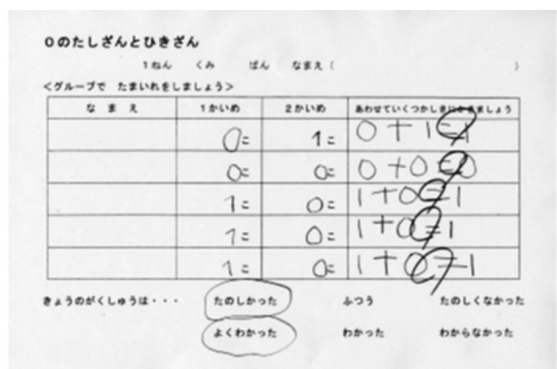 0のたしざんとひきざん
1ねん くみ ばん なまえ( )
<グループで たまいれをしましょう>
なまえ 1かいめ 2かいめ あわせていくつかしきにかきましょう
0こ 1こ 0+1=1
0こ 0こ 0+0=0
1こ 0こ 1+0=1
1こ 0こ 1+0=1
1こ 0こ 1+0=1
きょうのがくしゅうは・・・ たのしかった ふつう たのしくなかった
よくわかった わかった わからなかった